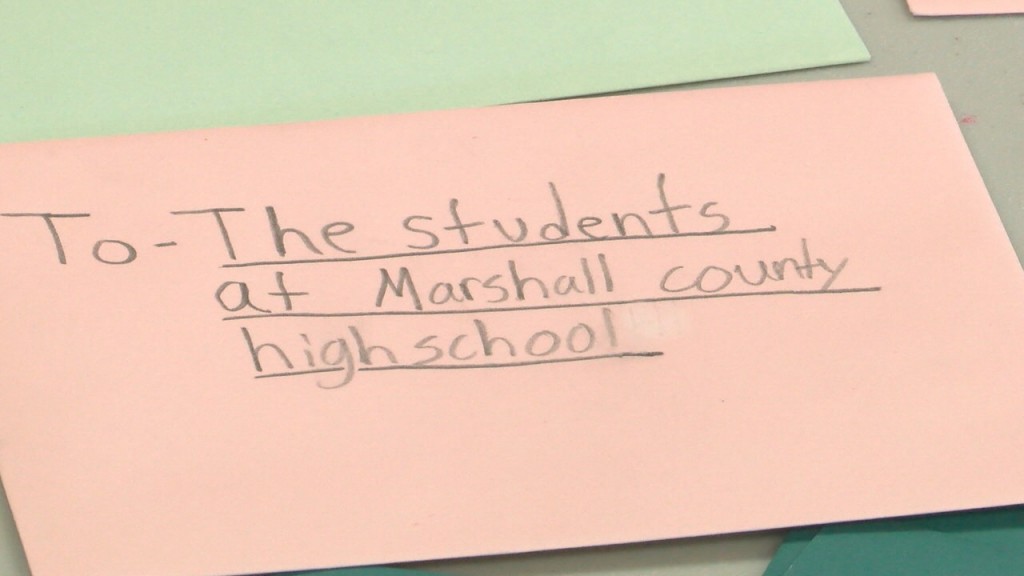 To - The students
at Marshall county
high school